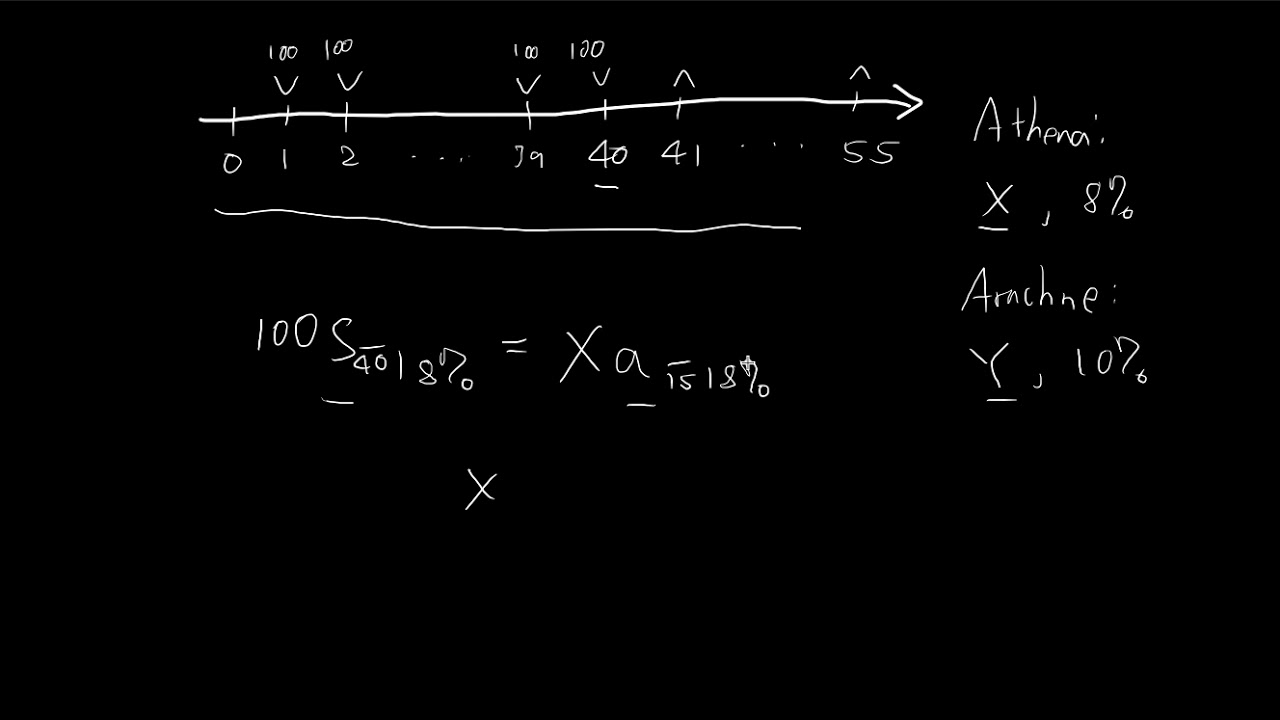 100 100 100 100
0 1 2 .... 39 40 41 .... 55
Athena:
X, 8%
Arachne:
Y, 10%
100 S 40| 8% = X a 15| 8%
X